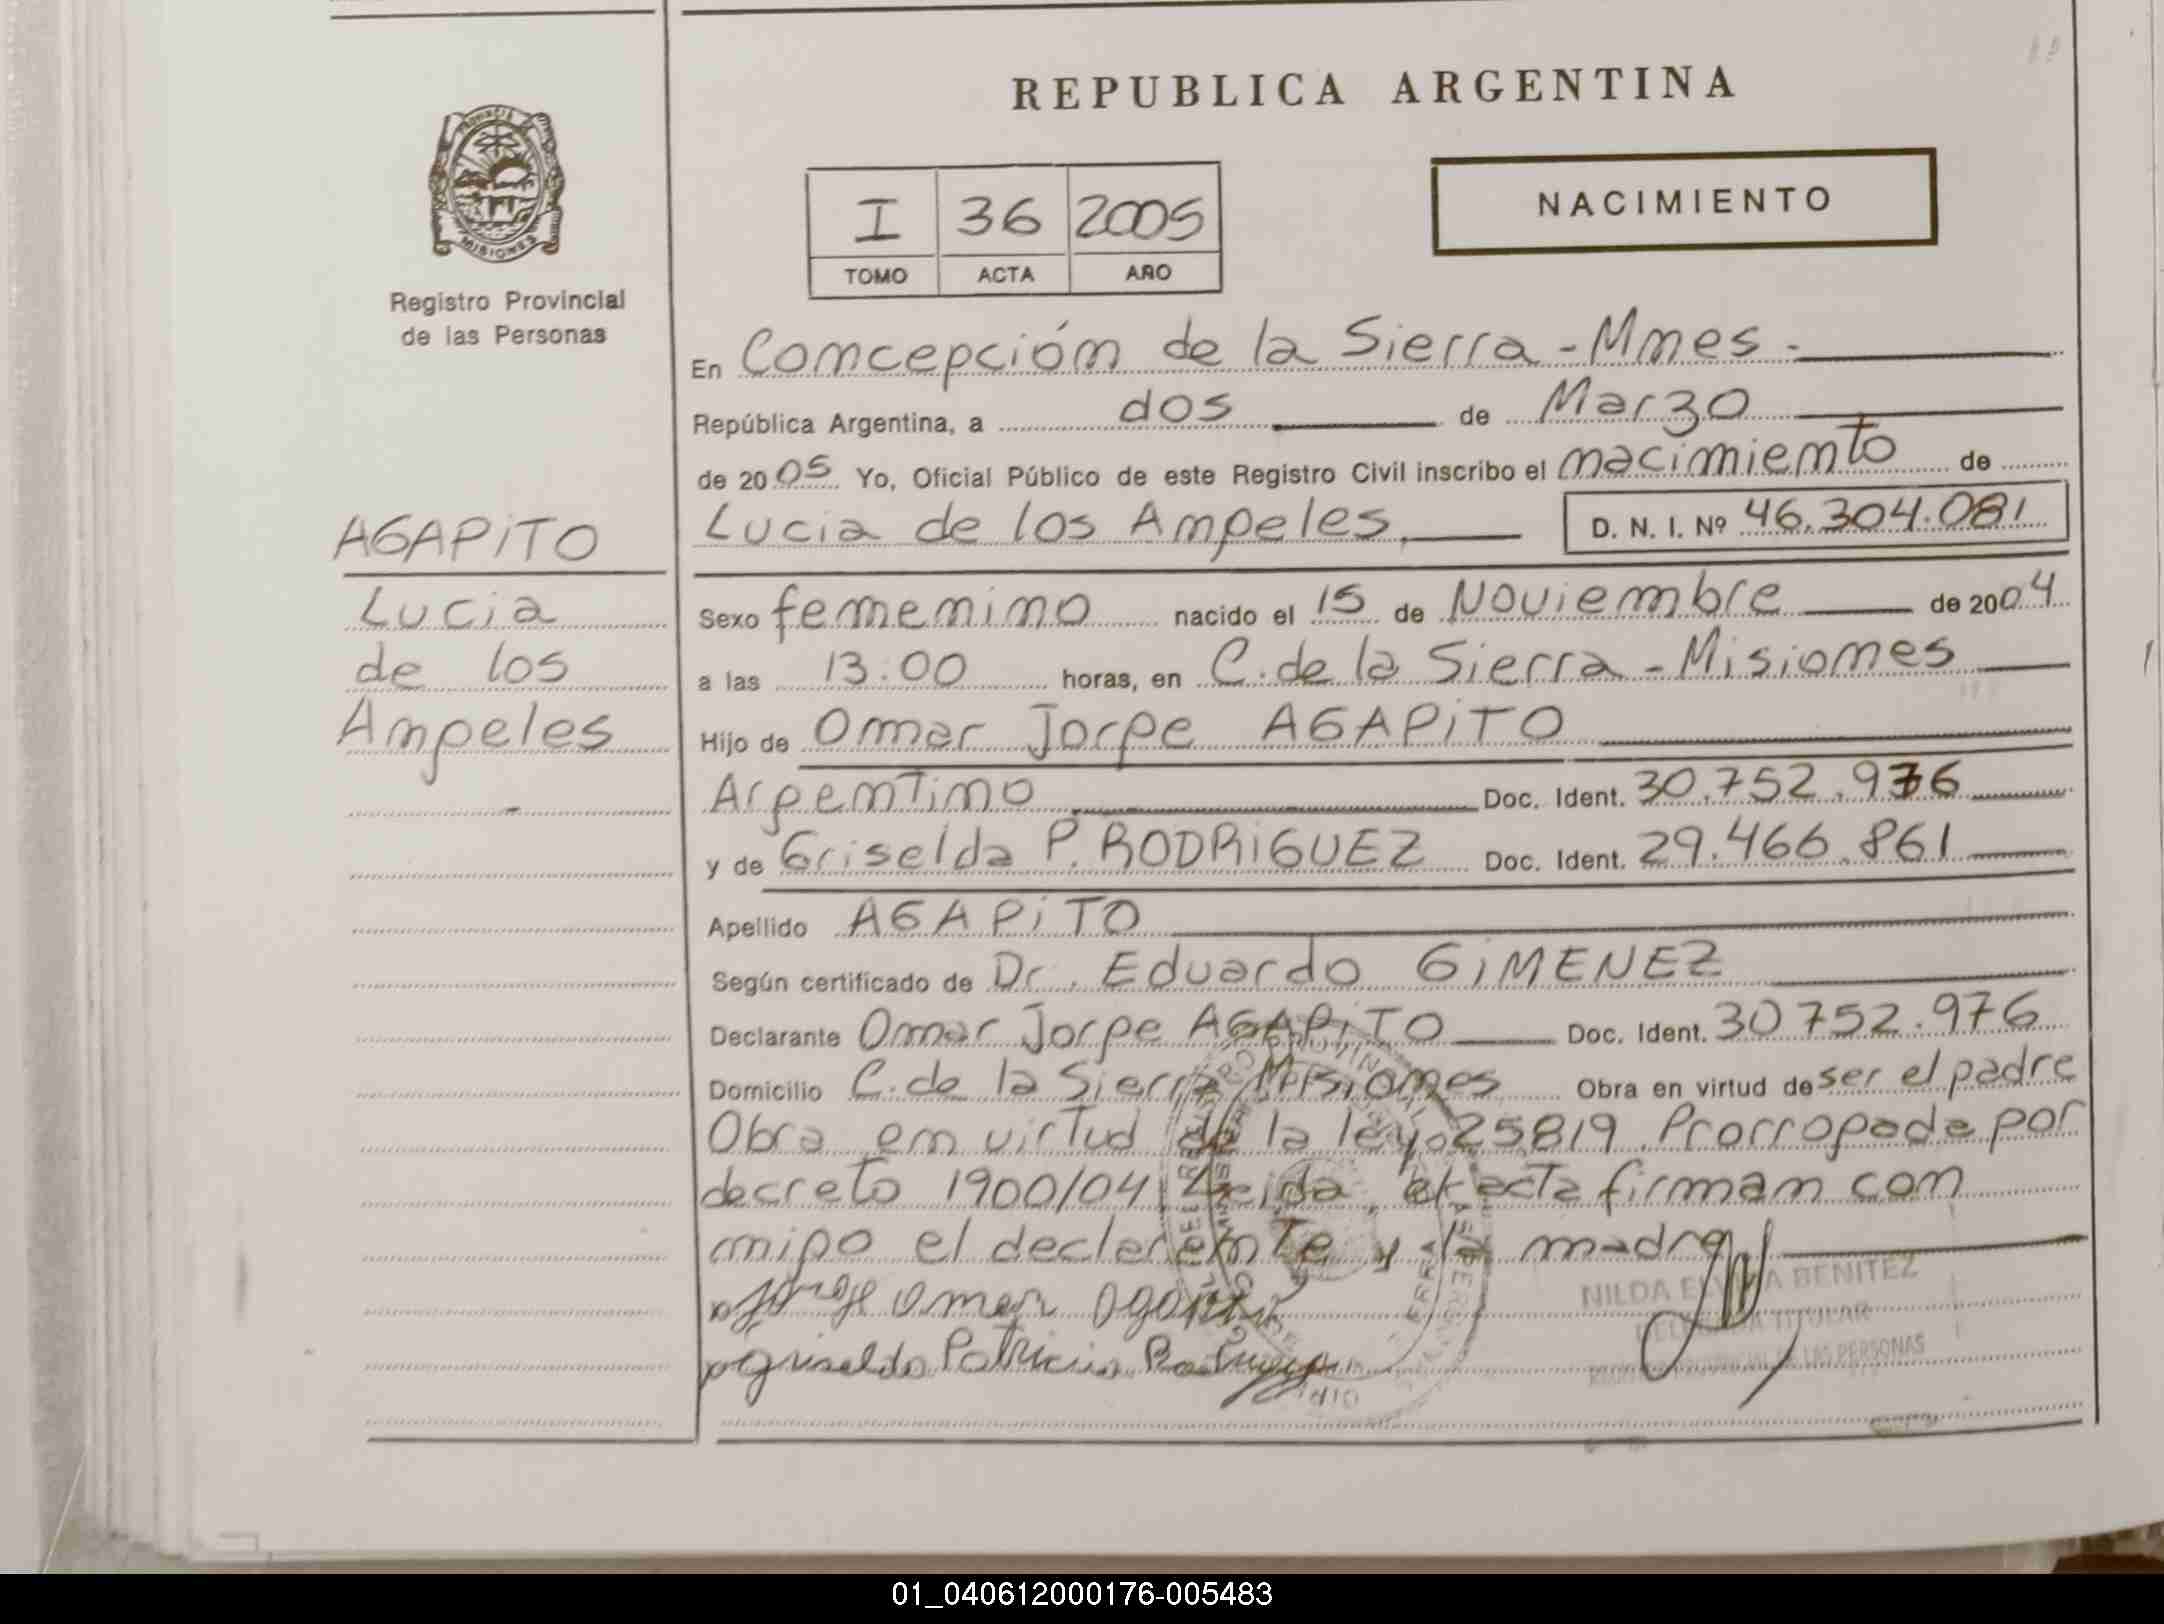 REPUBLICA ARGENTINA
PROVINCIA DE
MISIONES
Registro Provincial
de las Personas
I 36 2005
TOMO ACTA AÑO
NACIMIENTO
En Concepción de la Sierra - Mnes -
República Argentina, a dos de Marzo
de 2005 Yo, Oficial Público de este Registro Civil inscribo el nacimiento de
Lucia de los Angeles D. N. I. Nº 46.304.081
AGAPiTO
Lucia
de los
Angeles
Sexo femenino nacido el 15 de Noviembre de 2004
a las 13:00 horas, en C. de la Sierra - Misiones
Hijo de Omar Jorge AGAPiTO
Argentino Doc. Ident. 30.752.976
y de Griselda P. RODRiGUEZ Doc. Ident. 29.466.861
Apellido AGAPiTO
Según certificado de Dr. Eduardo GiMENEZ
Declarante Omar Jorge AGAPiTO Doc. Ident. 30752.976
Domicilio C. de la Sierra Misiones Obra en virtud de ser el padre
Obra en virtud de la ley 25819. Prorrogada por
decreto 1900/04 Leida el acta firman con
migo el declarante y la madre
Jorge omar agapito
Griselda Patricia Rodriguez
NILDA ELVIRA BENITEZ
DELEGADA TITULAR
REGISTRO PROVINCIAL DE LAS PERSONAS
01_040612000176-005483